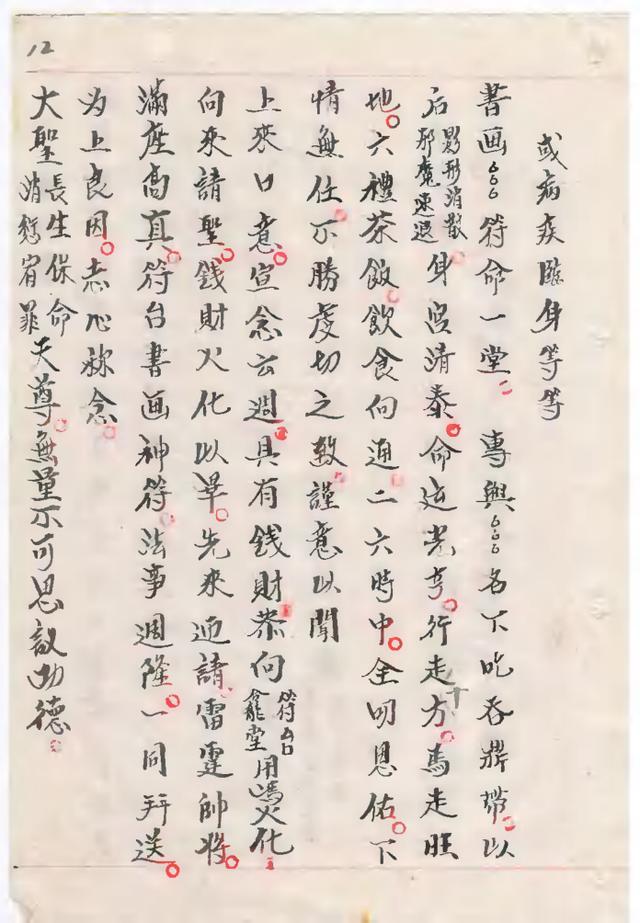 12
或病疾臨身等等
書画 符命一堂 專與 名下吃吞牂帶以
后影形消散邪魔速退身宮清泰命运光亨行走方馬走旺
地六禮茶飯飲食向通二六時中全明恩佑下
情無任不勝虔切之致謹意以聞
上來口意宣念云週具有錢財恭向符台龕堂用馮火化
向來請聖錢財火化以畢先來迎請雷霆帥将
滿座高真符台書画神符法事週隆一同奔送
为上良因志心称念
大聖長生保命消愆宥罪天尊無量不可思議功德